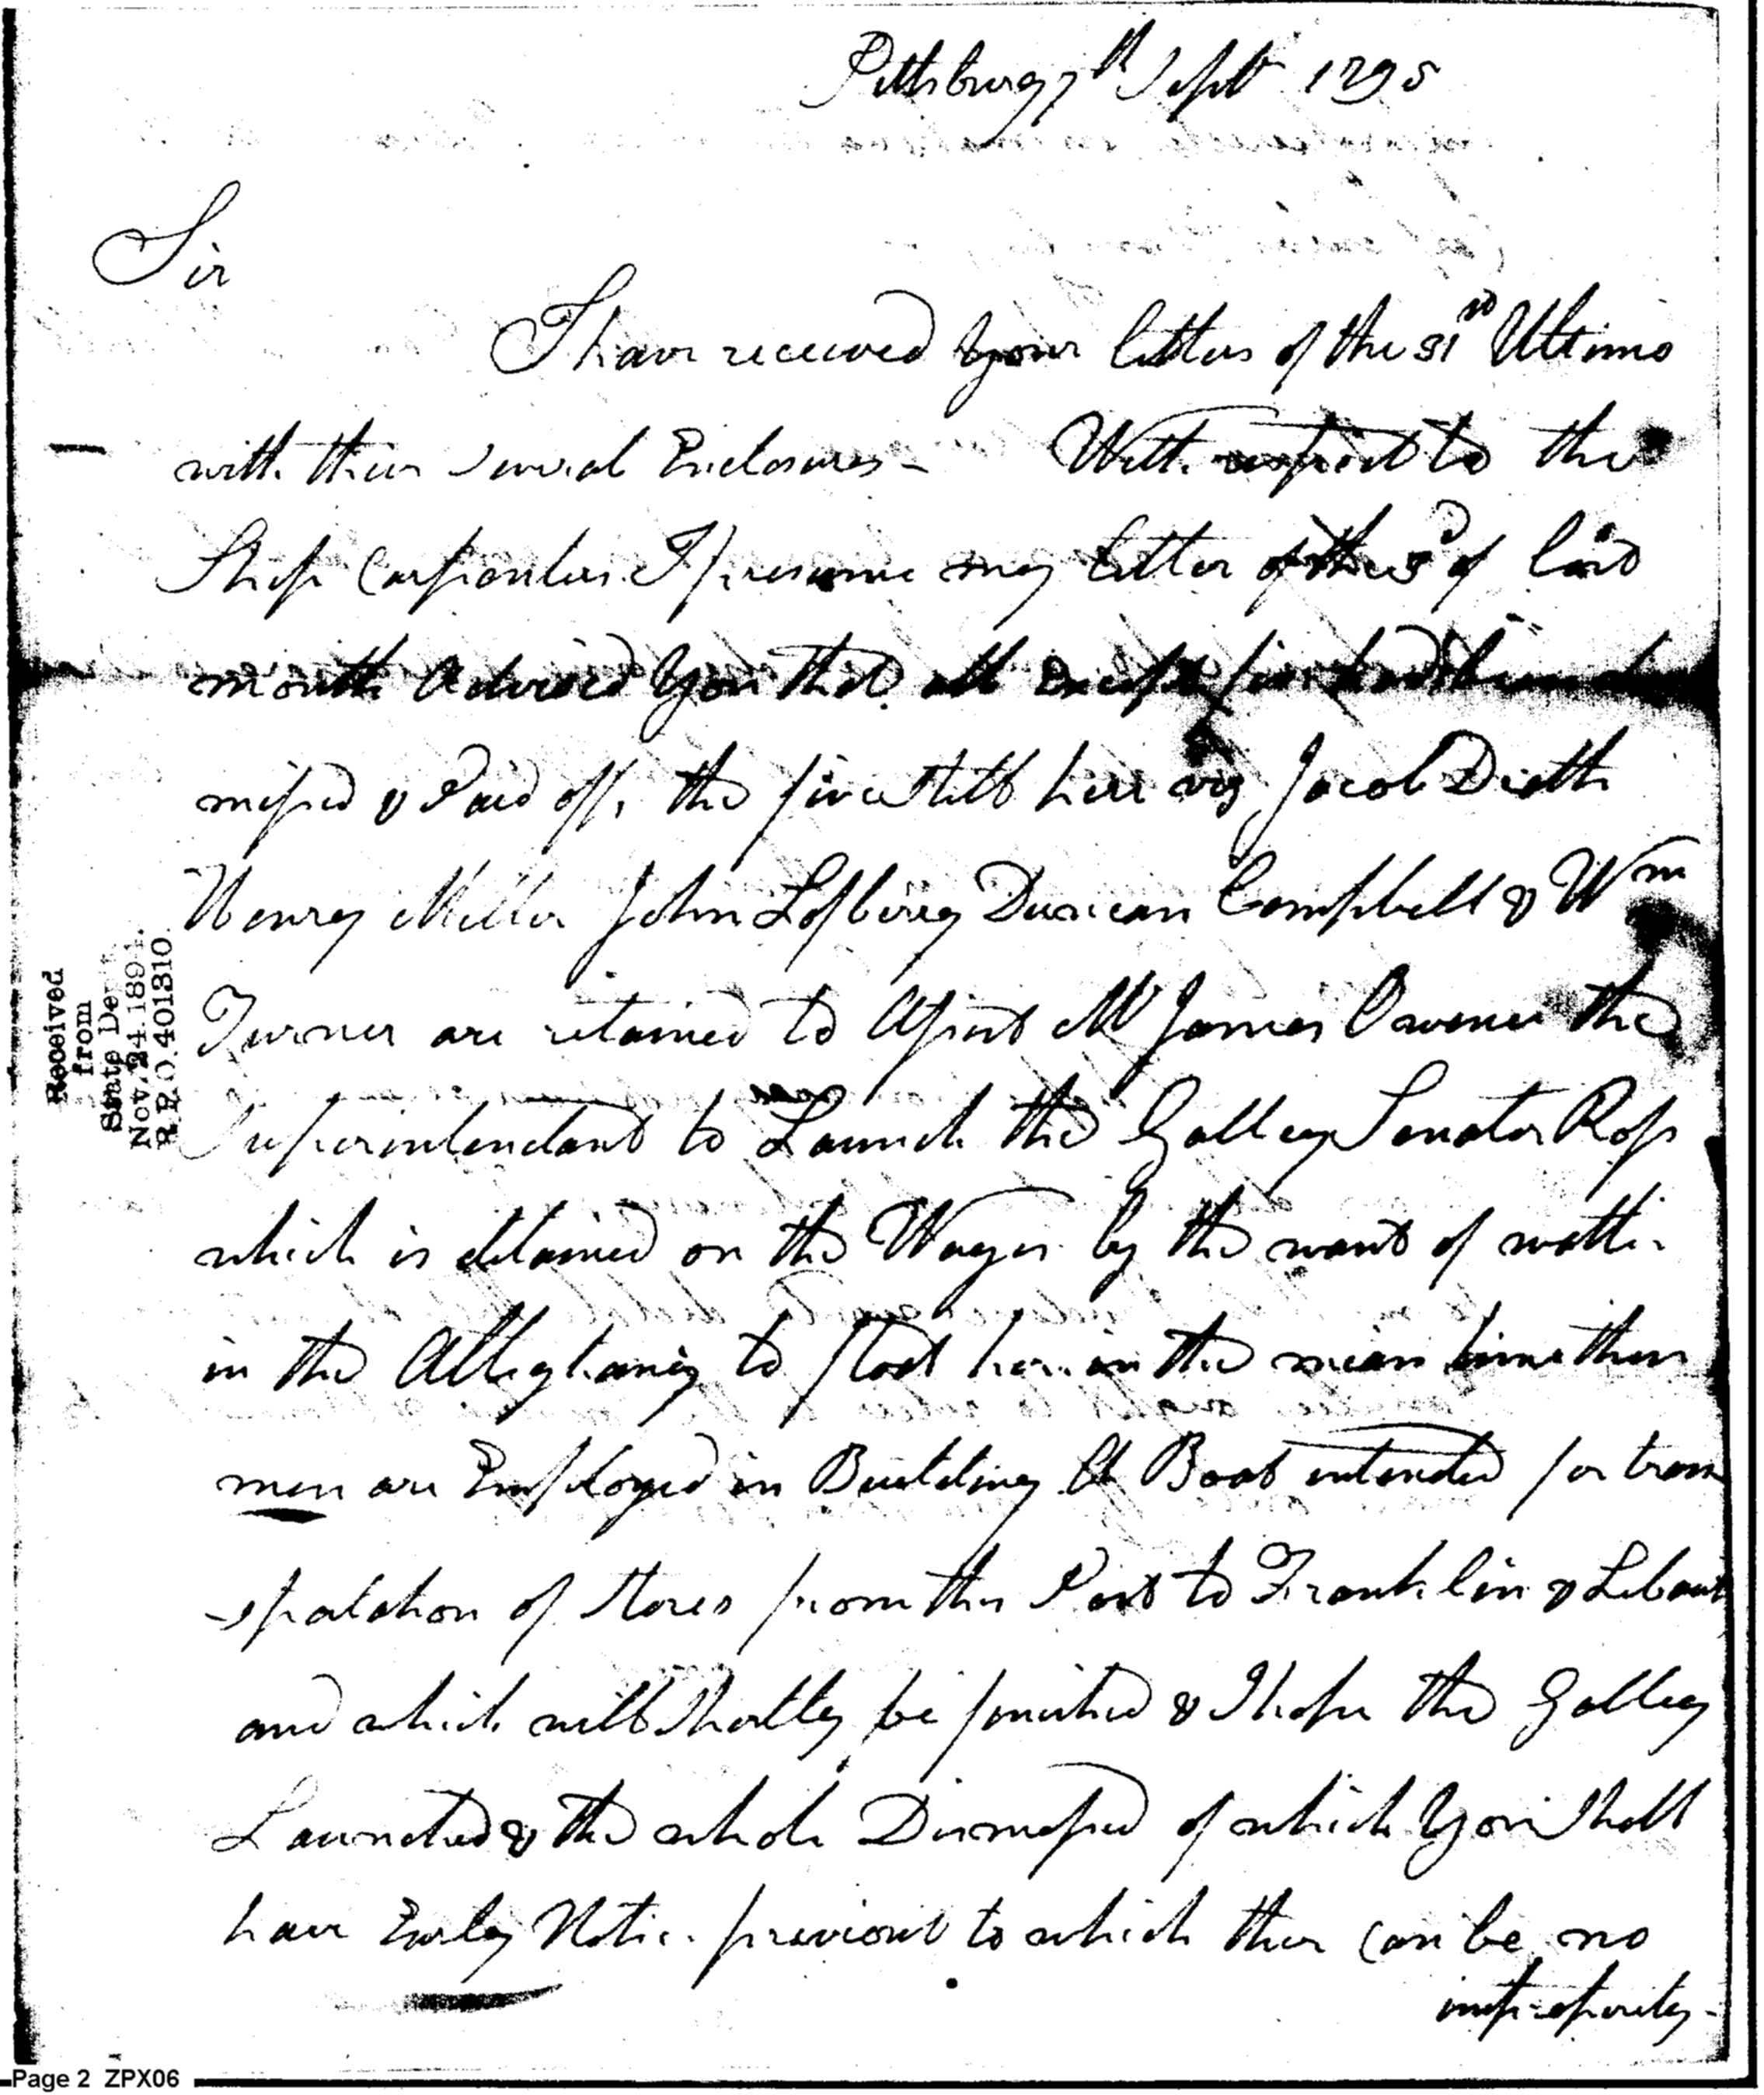 Pittsburg 7th Sept 1795
Sir
I have received your letters of the 31st Ultimo
with their several Enclosures - With respect to the
Ship Carpenters I presume my letter of the 5th of last
month Advised you that all Except five had been dis
missed & Paid off, the five still here viz Jacob Dieth
Henry Miller John Lofberry Duncan Campbell & Wm
Turner are retained to Assist Mr James Owener the
Superintendant to Launch the Galley Senator Ross
which is detained on the Ways by the want of watter
in the Alleghaney to float her. in the mean time these
men are Employed in Building A Boat intended for tran
-sportation of stores from this Post to Franklin & Lebauf
and which will shortly be finished & I hope the Galley
Launched & the whole Dismissed of which you shall
have Early Notice. previous to which ther can be no
impropriety -
Received
from
State Dep't.
Nov. 24. 1894.
R.P.O. 401310.
Page 2 ZPX06